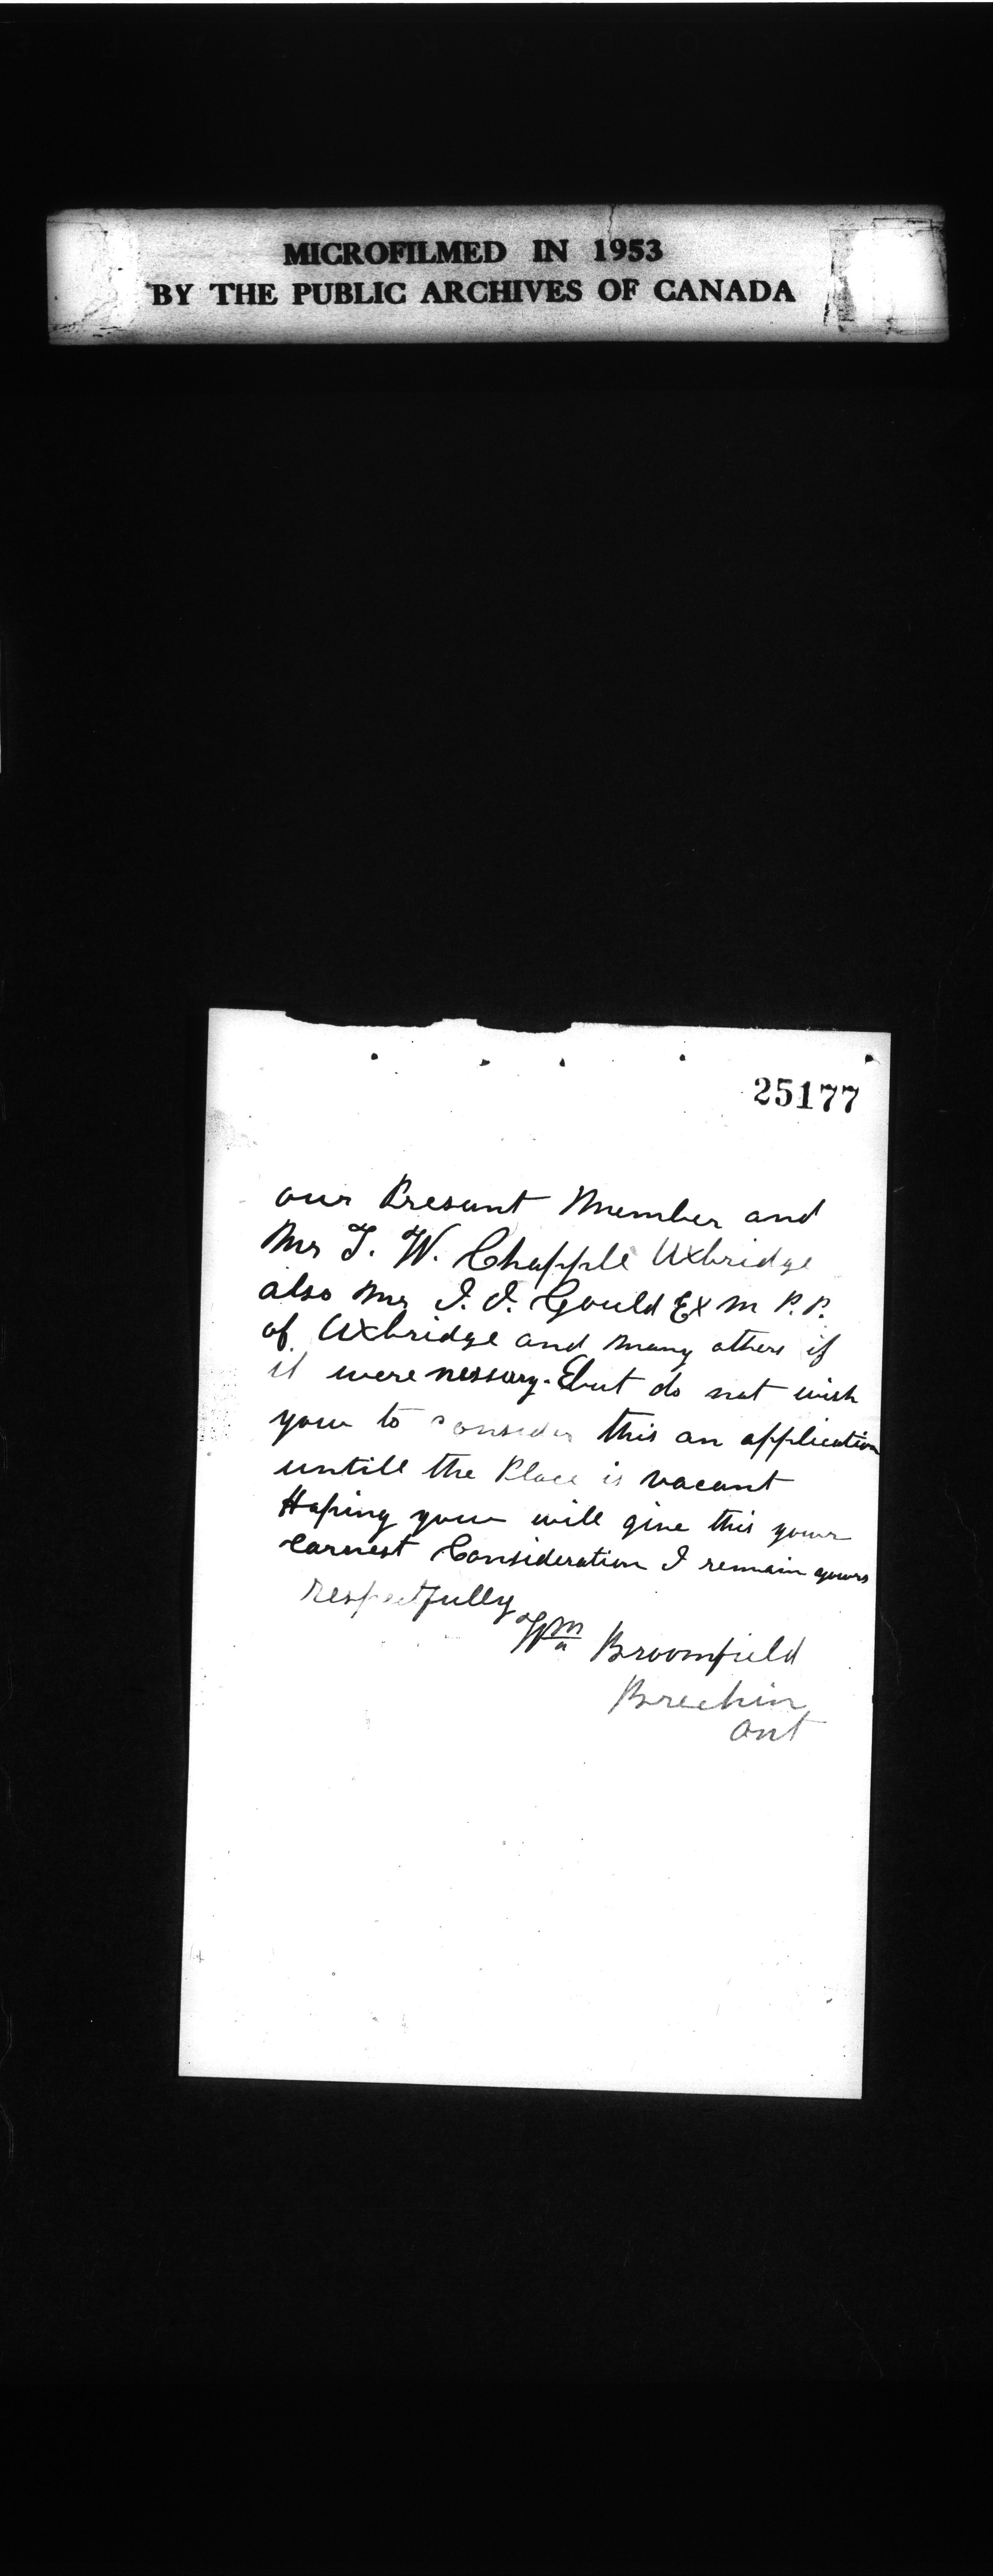 MICROFILMED IN 1953
BY THE PUBLIC ARCHIVES OF CANADA
25177
our Presant Member and
Mr T. W. Chapple Uxbridge
also Mr I. J. Gould Ex M P. P.
of Uxbridge and many others if
it were nessary. but do not wish
your to consider this an application
untill the Place is vacant
Hoping your will give this your
earnest Consideration I remain yours
respectfully
Wm Broomfield
Brechin
Ont